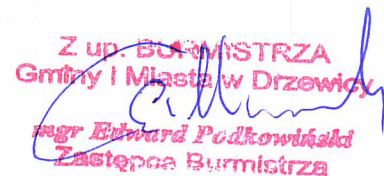 Z up. BURMISTRZA
Gminy i Miasta w Drzewicy
mgr Edward Podkowiński
Zastępca Burmistrza